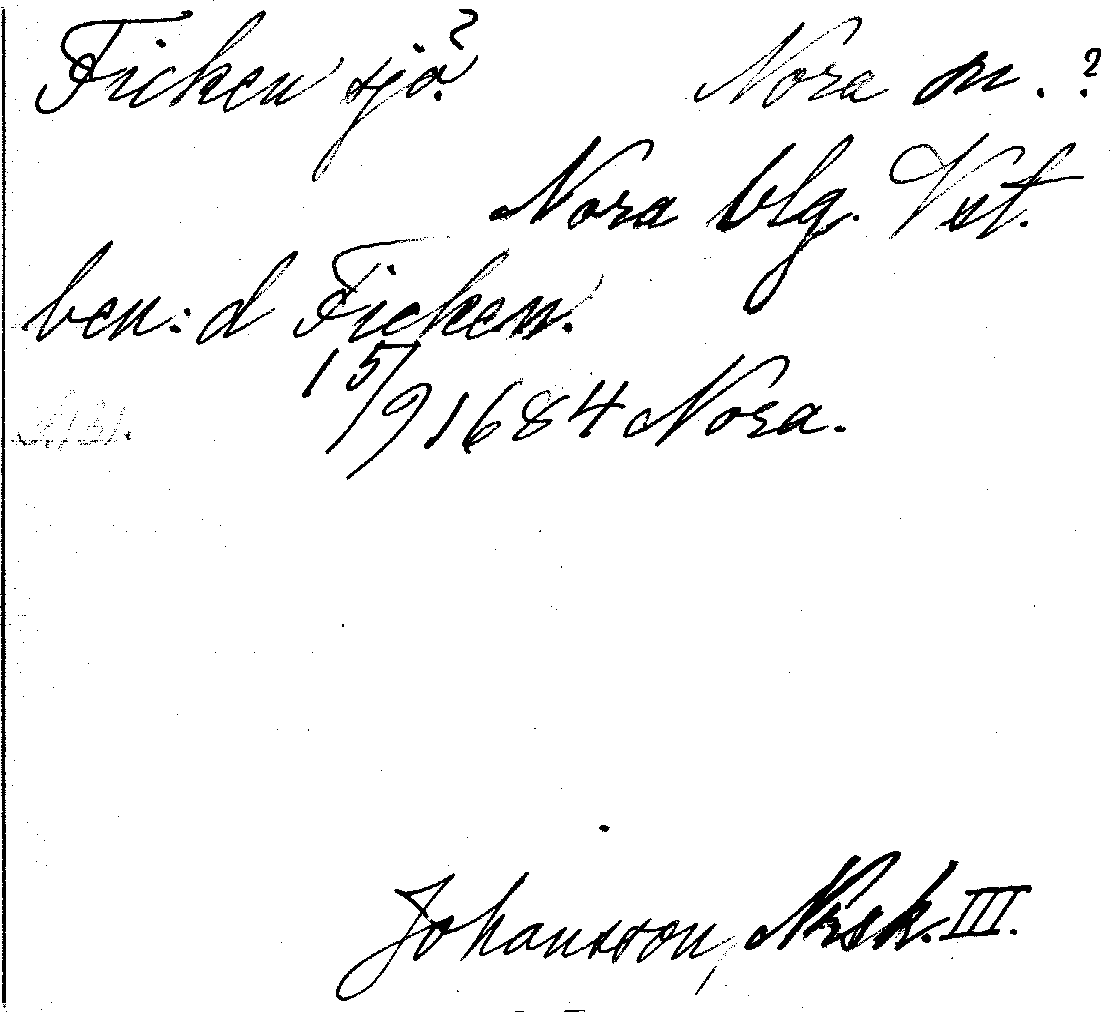 Ficken sjö? Nora sn.?
Nora blg. Vst.
ben: d Ficken.
15/9 1684 Nora.
Johansson, Nrsk. III.